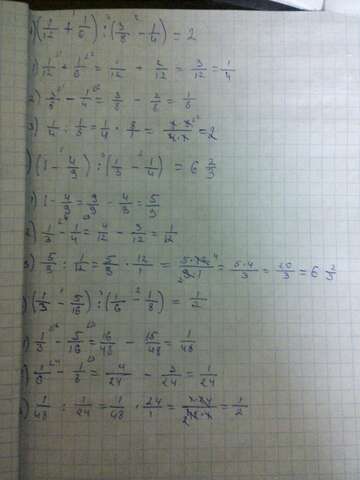 1) (1/12 + 1/6) : (3/8 - 1/4) = 2
1) 1/12 + 1/6 = 1/12 + 2/12 = 3/12 = 1/4
2) 3/8 - 1/4 = 3/8 - 2/8 = 1/8
3) 1/4 : 1/8 = 1/4 · 8/1 = = 2
) (1 - 4/9) : (1/3 - 1/4) = 6 2/3
1 - 4/9 = 9/9 - 4/9 = 5/9
2) 1/3 - 1/4 = 4/12 - 3/12 = 1/12
3) 5/9 : 1/12 = 5/9 · 12/1 = 5·12/9·1 = 5·4/3 = 20/3 = 6 2/3
) (1/3 - 5/16) : (1/6 - 1/8) = 1/2
) 1/3 - 5/16 = 16/48 - 15/48 = 1/48
) 1/6 - 1/8 = 4/24 - 3/24 = 1/24
) 1/48 : 1/24 = 1/48 · 24/1 = = 1/2